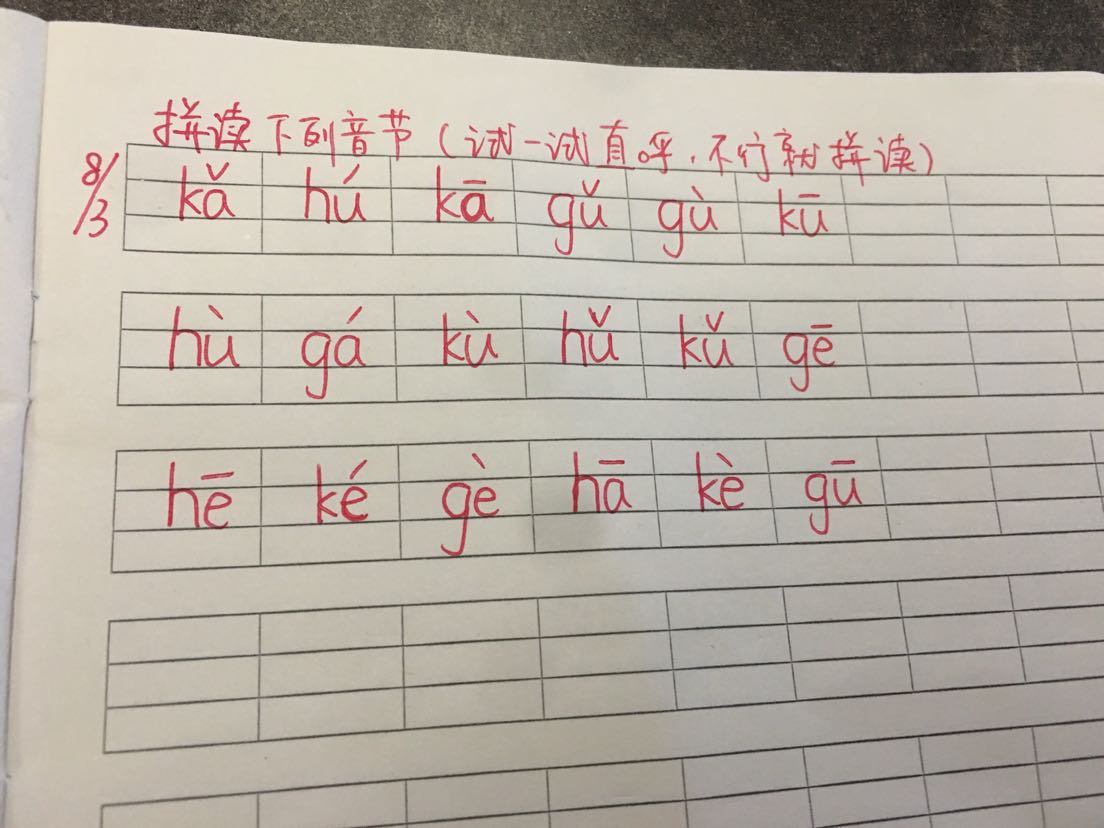 拼读下列音节(试一试直呼,不行就拼读)
8/3
kǎ hú kā gǔ gù kū
hù gá kù hǔ kǔ gē
hē ké gè hā kè gū